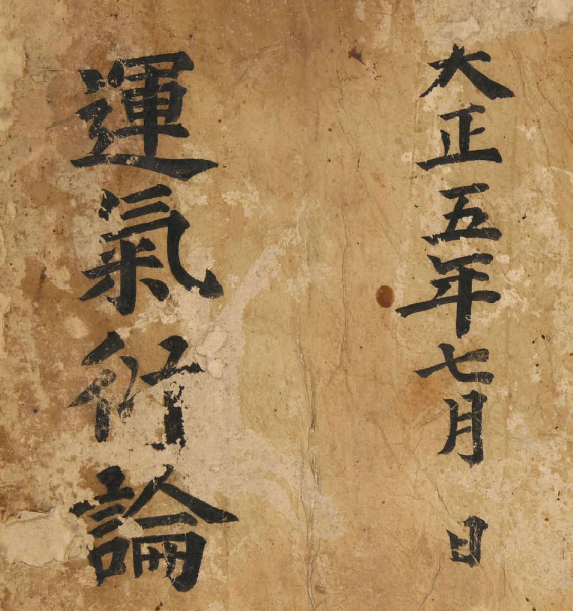 大正五年七月 日
運氣衍論